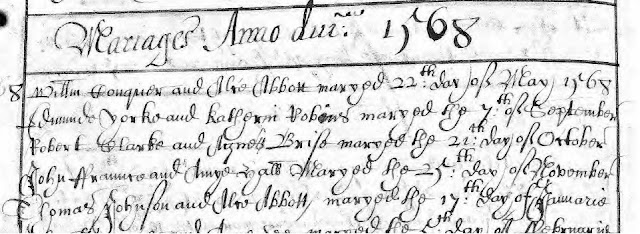 Mariages Anno dni: 1568
8 Willm Conquer and Alce Abbott maryed 22th day off May 1568
Edmunde Yorke and Katherin Robins maryed the 7th off September
Robert Clarke and Agnes Brise maryed the 21th day off October
John Fraunce and Maryed the 25th day off November
Thomas Johnson and Alce Abbott maryed the 17th day of Januarie
and maryed the th day off Februarie